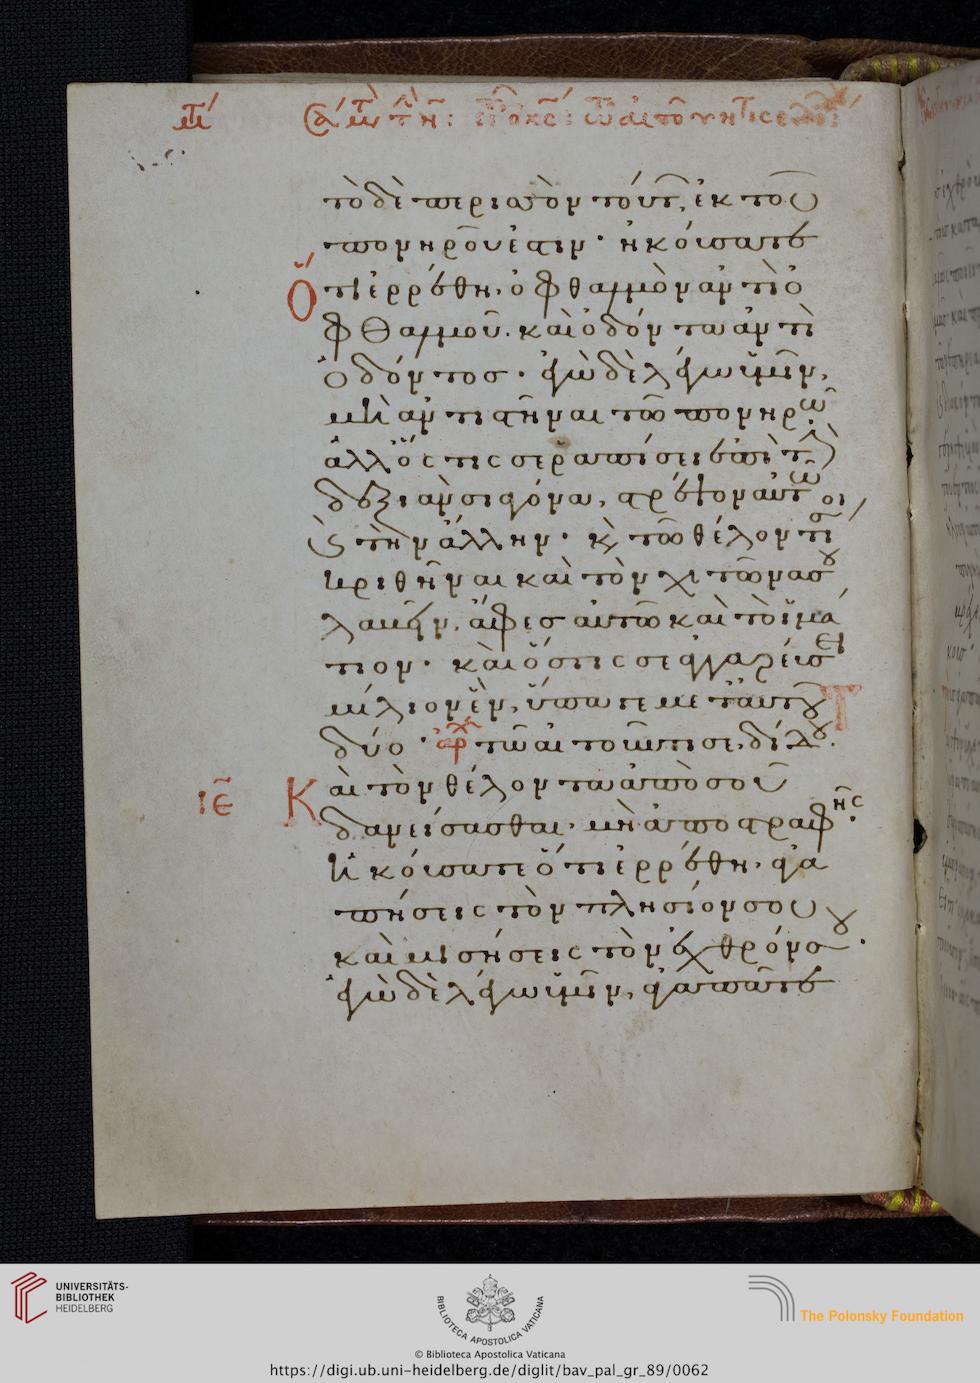 τὸ δὲ περισσὸν τούτ, ἐκ τοῦ
πονηροῦ ἐστιν· ἠκούσατε
Ὅτι ἐρρέθη, ὀφθαλμὸν ἀντὶ ὀ
φθαλμοῦ. καὶ ὀδόντα ἀντὶ
ὀδόντος· ἐγὼ δὲ λέγω ὑμῖν,
μὴ ἀντιστῆναι τῶ πονηρῶ.
ἀλλ' ὅς τις σε ραπίσει ἐπὶ τὴν
δεξιὰν σιαγόνα, στρέψον αὐτῶ
καὶ τὴν ἄλλην· κ τῶ θέλοντί σοι
κριθῆναι καὶ τὸν χιτῶνα σου
λαβεῖν, ἄφες αὐτῶ καὶ τὸ ἱμά
τιον· καὶ ὅστις σε ἀγγαρεύσει
μίλιον ἕν, ὕπαγε με τ' αὐτοῦ
δύο· ἀρχ τῶ αἰτοῦντι σε, δίδου.
ιε Καὶ τὸν θέλοντα ἀπὸ σοῦ
δανείσασθαι, μὴ ἀποστραφῆς.
Ἠκούσατε ὅτι ἐρρέθη, ἀγα
πήσεις τὸν πλησίον σου
καὶ μισήσεις τὸν ἐχθρόν σου.
ἐγὼ δὲ λέγω ὑμῖν, ἀγαπᾶτε
UNIVERSITÄTS-
BIBLIOTHEK
HEIDELBERG
BIBLIOTECA APOSTOLICA VATICANA
The Polonsky Foundation
© Biblioteca Apostolica Vaticana
https://digi.ub.uni-heidelberg.de/diglit/bav_pal_gr_89/0062